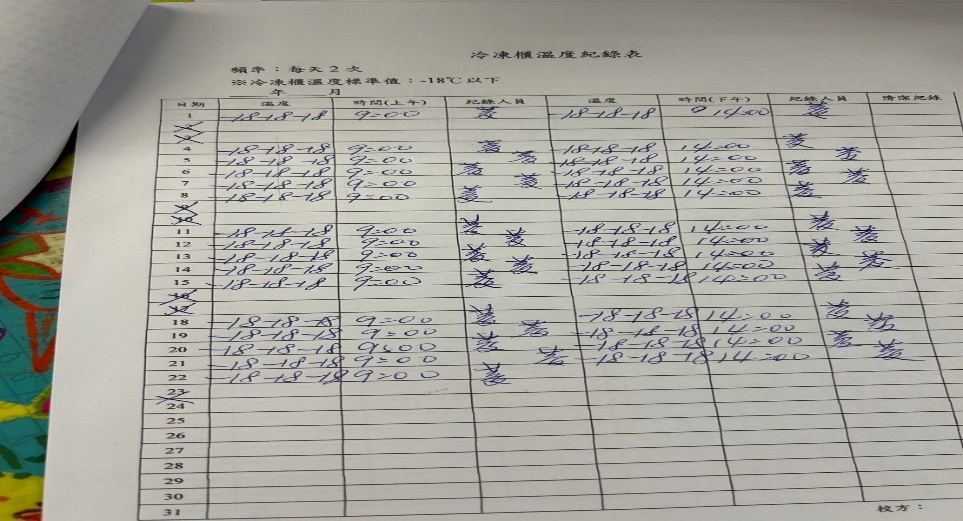 冷凍櫃溫度紀錄表
頻率：每天2次
※冷凍櫃溫度標準值：-18℃以下
年 月
日期 溫度 時間(上午) 紀錄人員 溫度 時間(下午) 紀錄人員 清潔紀錄
1 -18-18-18 9:00 -18-18-18 14:00
2
3
4 -18-18-18 9:00 -18-18-18 14:00
5 -18-18-18 9:00 -18-18-18 14:00
6 -18-18-18 9:00 -18-18-18 14:00
7 -18-18-18 9:00 -18-18-18 14:00
8 -18-18-18 9:00 -18-18-18 14:00
9
10
11 -18-18-18 9:00 -18-18-18 14:00
12 -18-18-18 9:00 -18-18-18 14:00
13 -18-18-18 9:00 -18-18-18 14:00
14 -18-18-18 9:00 -18-18-18 14:00
15 -18-18-18 9:00 -18-18-18 14:00
16
17
18 -18-18-18 9:00 -18-18-18 14:00
19 -18-18-18 9:00 -18-18-18 14:00
20 -18-18-18 9:00 -18-18-18 14:00
21 -18-18-18 9:00 -18-18-18 14:00
22 -18-18-18 9:00
23
24
25
26
27
28
29
30
31
校方：